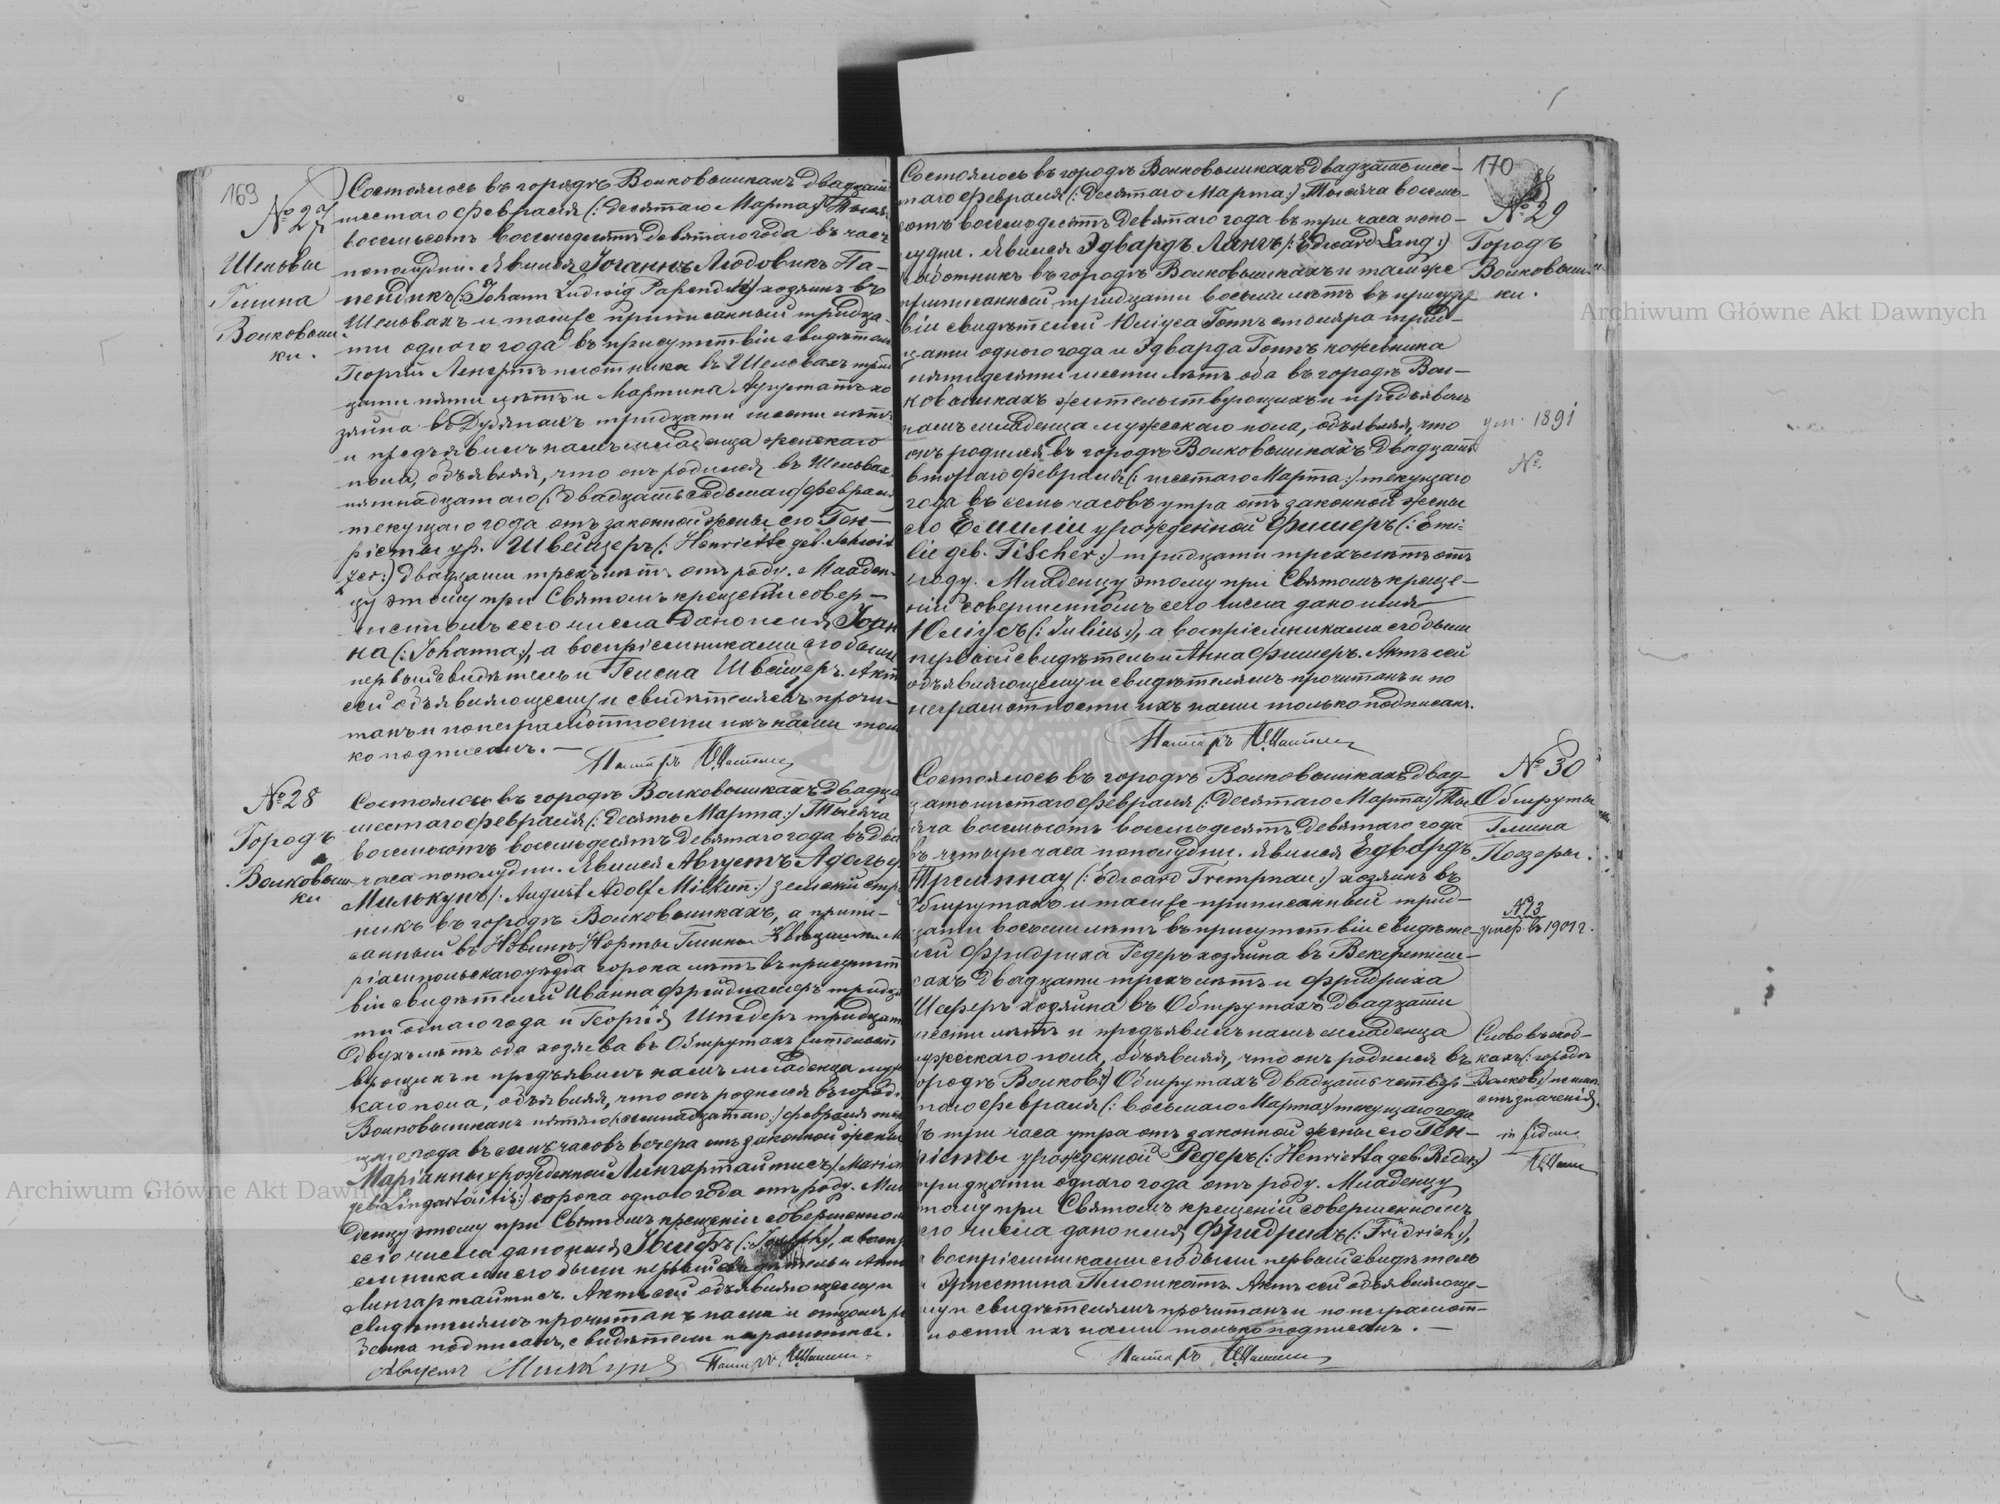 169
№ 27
Шельвы
Гмина
Волковыш-
ки.
Состоялось въ городѣ Волковышкахъ двадцать
шестаго Февраля (: десятаго Марта:) Тысяча
восемьсотъ восемьдесятъ девятаго года въ часъ
пополудни. Явился Іоганнъ Людовикъ Па-
пендикъ (: Johann Ludwig Papendik) хозяинъ въ
Шельвахъ и тамъ же приписанный тридца-
ти одного года въ присутствіи свидѣтелей
Георгій Ленертъ плотника въ Шельвахъ трид
цати пяти лѣтъ и Мартина Аугустатъ хо
зяина въ Дубянахъ тридцати шести лѣтъ
и предъявилъ намъ младенца женскаго
пола, объявляя, что онъ родился въ Шельвахъ
пятнадцатаго (: двадцать седьмаго) Февраля
текущаго года отъ законной жены его Ген-
ріеты ур. Швейцеръ (: Henriette geb. Schweit
zer:) двадцати трехъ лѣтъ отъ роду. Младен-
цу этому при Святомъ крещеніи совер-
шенномъ сего числа дано имя Іоан
на (: Johanna:), а воспріемниками его были
первый свидѣтель и Гелена Швейцеръ. Актъ
сей объявляющему и свидѣтелямъ прочи-
танъ и по неграмотности ихъ нами толь
ко подписанъ. —
Пасторъ
№ 28
Городъ
Волковыш-
ки
Состоялось въ городѣ Волковышкахъ двадца
шестаго Февраля (: десять Марта:) Тысяча
восемьсотъ восемьдесятъ девятаго года въ два
часа пополудни. Явился Августъ Адольф
Милькунъ (: August Adolf Milkun:) земскій стра
никъ въ городѣ Волковышкахъ, а припи-
санный въ Гмины
ріампольскаго уѣзда сорока лѣтъ въ присутст
віи свидѣтелей Ивана тридца
ти одного года и Георгія Шнедеръ тридцати
двухъ лѣтъ оба хозяева въ Обшрутахъ жительст
вующихъ и предъявилъ намъ младенца муж
каго пола, объявляя, что онъ родился въ городѣ
Волковышкахъ пятаго (: семнадцатаго:) Февраля теку
щаго года въ семь часовъ вечера отъ законной жены
Маріанны урожденной Лингартайтисъ (: Marian
geb. Lingartaitis:) сорока одного года отъ роду. Мла
денцу этому при Святомъ крещеніи совершенном
сего числа дано имя Іосифъ (: Joseph:), а воспр
емниками его были первый свидѣтель и Анна
Лингартайтисъ. Актъ сей объявляющему и
свидѣтелямъ прочитанъ нами и отцомъ ре
бенка подписанъ, свидѣтели неграмотны.
Августъ Милкунъ Пасторъ
170
86
№ 29
Городъ
Волковыш-
ки.
Состоялось въ городѣ Волковышкахъ двадцать шес-
таго Февраля (: десятаго Марта:) Тысяча восемь-
сотъ восемьдесятъ девятаго года въ три часа попо-
лудни. Явился Эдвардъ Лангъ (: Edward Lang:)
работникъ въ городѣ Волковышкахъ и тамъ же
приписанный, тридцати восьми лѣтъ въ присутст
віи свидѣтелей Юліуса Гоппъ столяра трид-
цати одного года и Эдварда Гоппъ кожевника
пятидесяти шести лѣтъ оба въ городѣ Вол-
ковышкахъ жительствующихъ и предъявилъ
намъ младенца мужескаго пола, объявляя, что
онъ родился въ городѣ Волковышкахъ двадцать
втораго Февраля (: шестаго Марта:) текущаго
года въ семь часовъ утра отъ законной жены
его Емиліи урожденной Фишеръ (: Emi-
lie geb. Fischer:) тридцати трехъ лѣтъ отъ
роду. Младенцу этому при Святомъ креще-
ніи совершенномъ сего числа дано имя
Юліусъ (: Julius:), а воспріемниками его были
первый свидѣтель и Анна Фишеръ. Актъ сей
объявляющему и свидѣтелямъ прочитанъ и по
неграмотности ихъ нами только подписанъ.
Пасторъ
ум. 1891
№
№ 30
Обшруты
Гмина
Поезеры.
№ 3
умер. въ 1901 г.
Состоялось въ городѣ Волковышкахъ двад-
цать шестаго Февраля (: десятаго Марта:) Ты
сяча восемьсотъ восемьдесятъ девятаго года
въ четыре часа пополудни. Явился Едвардъ
Тремпнау (: Edward Trempnau:) хозяинъ въ
Обшрутахъ и тамъ же приписанный трид-
цати восьми лѣтъ въ присутствіи свидѣте-
лей Фридриха Редеръ хозяина въ
двадцати трехъ лѣтъ и Фридриха
Шаферъ хозяина въ Обшрутахъ двадцати
шести лѣтъ и предъявилъ намъ младенца
мужескаго пола, объявляя, что онъ родился въ
городѣ Волков:) Обшрутахъ двадцать четвер-
таго Февраля (: восьмаго Марта:) текущаго года
въ три часа утра отъ законной жены его Ген-
ріеты урожденной Редеръ (: Henrietta geb. Reder:)
тридцати одного года отъ роду. Младенцу
этому при Святомъ крещеніи совершенномъ
сего числа дано имя Фридрихъ (: Fridrich:),
а воспріемниками его были первый свидѣтель
и Эрнестина Пелошкатъ. Актъ сей объявляюще-
му и свидѣтелямъ прочитанъ и по неграмот-
ности ихъ нами только подписанъ. —
Пасторъ
Слово въ скоб-
кахъ (: городѣ
Волков:) не имѣ
етъ значенія.
in fidem
Archiwum Główne Akt Dawnych
Archiwum Główne Akt Dawnych